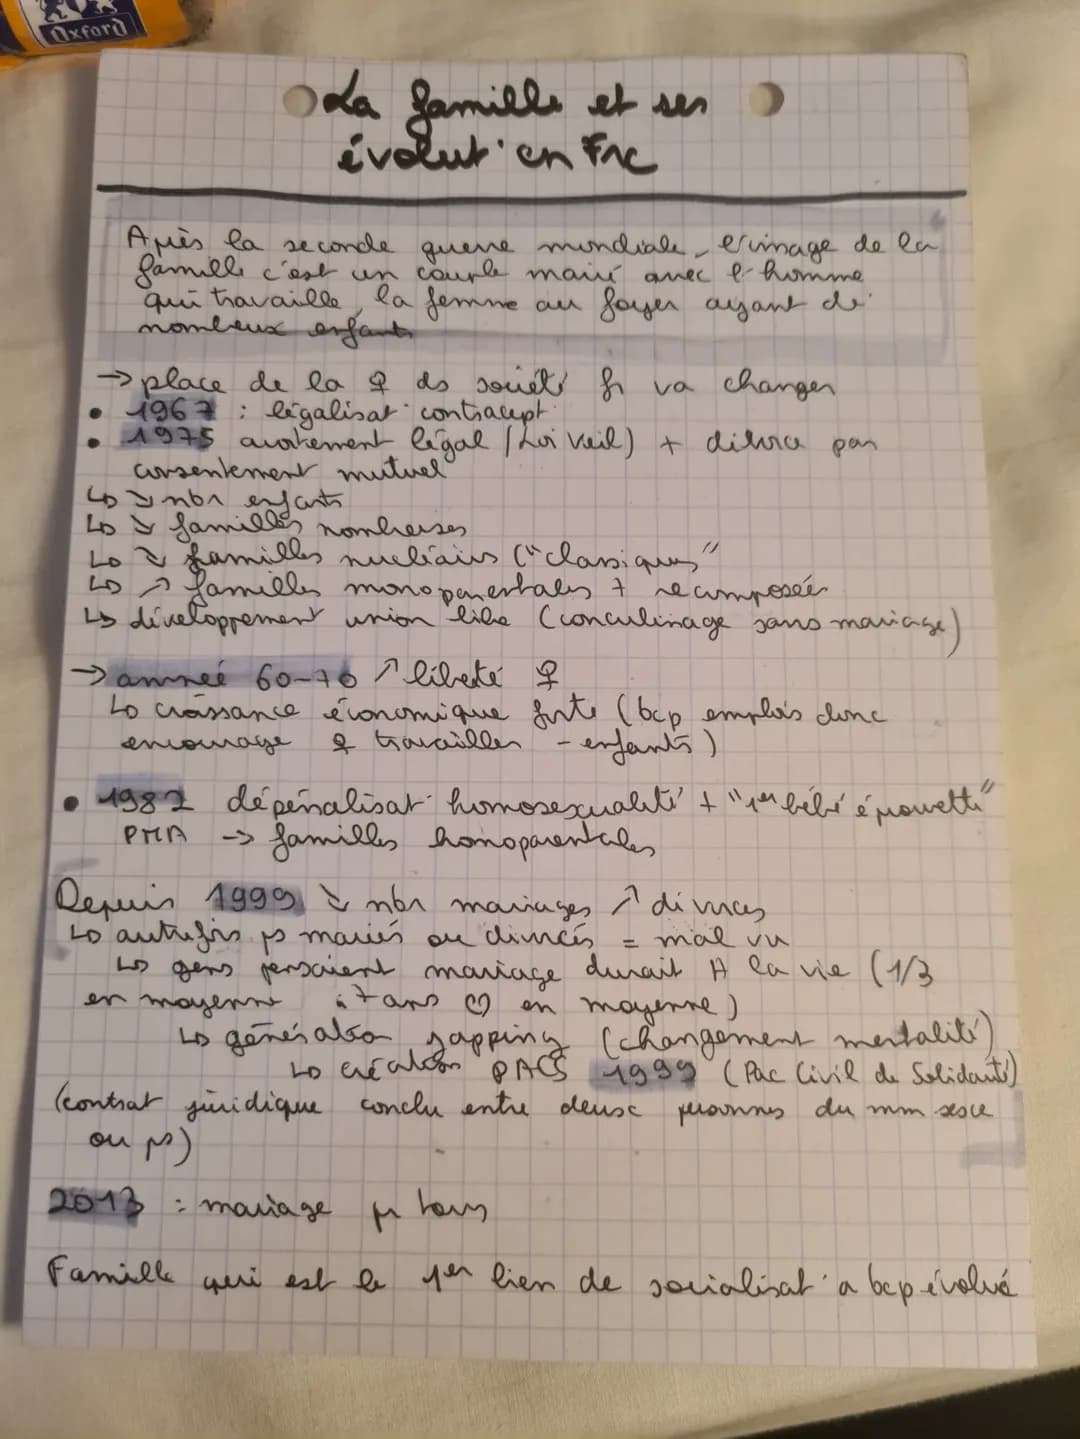 Oxford
La famille et ses
évolut° en Frc
Après la seconde guerre mondiale, l'image de la
famille c'est un couple marié avec l'homme
qui travaille, la femme au foyer ayant de
nombeux enfants
→ place de la ♀ ds société fr va changer
• 1967 : légalisat° contracept°
• 1975 avortement légal (Loi Veil) + divorce par
consentement mutuel
↳ ↘ nbr enfants
↳ ↘ familles nombreuses
↳ ↘ familles nucléaires ("classiques"
↳ ↗ familles monoparentales + recomposées
↳ développement union libre (conculinage sans mariage)
→ année 60-70 ↗ liberté ♀
↳ croissance économique forte (bcp emplois donc
encourage ♀ travailler - enfants)
• 1982 dépénalisat° homosexualité + "1er bébé éprouvette"
PMA → familles homoparentales
Depuis 1999 ↘ nbr mariages ↗ divorces
↳ autrefois ps mariés ou divorcés = mal vu
↳ gens pensaient mariage durait A la vie (1/3
en moyenne : 7 ans en moyenne)
↳ génération zapping (changement mentalité)
↳ création PACS 1999 (Pac Civil de Solidarité)
(contrat juridique conclu entre deux personnes du mm sexe
ou ps)
2013 : mariage pr tous
Famille qui est le 1er lien de socialisat° a bcp évolué